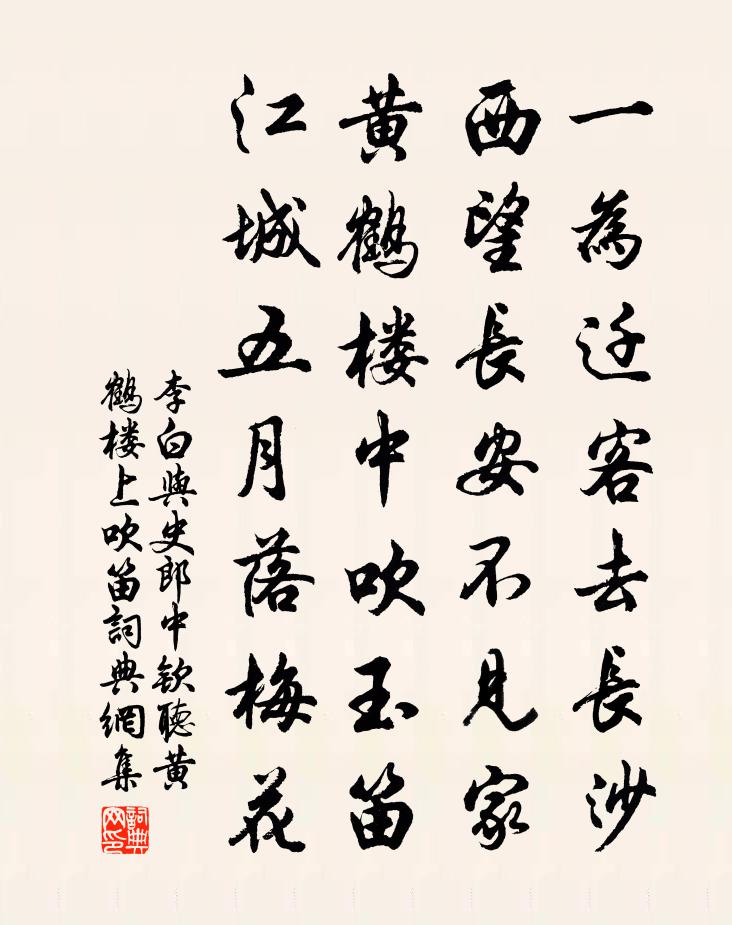 一為迁客去長沙
西望長安不見家
黃鶴楼中吹玉笛
江城五月落梅花
李白與史郎中欽聽黃
鶴楼上吹笛詞典網集
詞典
网印